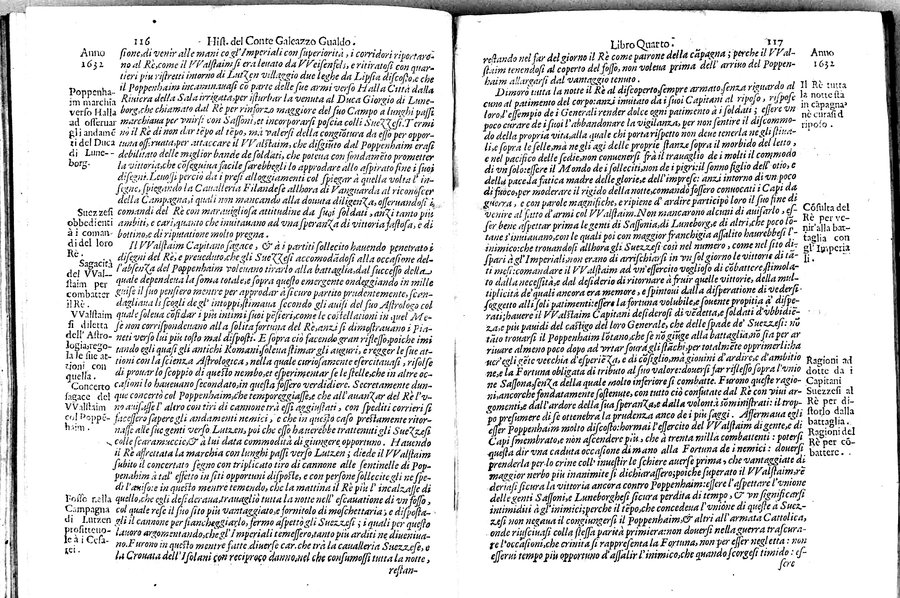 116 Hist. del Conte Galeazzo Gualdo.
Anno
1632
sione, di venir alle mani co gl'Imperiali con superiorità, i corridori riportare-
no al Rè, come il VValstaim si era leuato da VVeisensels, e ritiratosi con quar-
tieri più ristretti intorno di Lutzen villaggio due leghe da Lipsia discosto, e che
Poppenha-
im marchia
verso Halla
ad osseruar
gli andamẽ
ti del Duca
di Lune-
borg.
il Poppenhaim incaminauasi cõ parte delle sue armi verso Halla Città dalla
Riuiera della Sala irrigata, per isturbar la venuta al Duca Giorgio di Lune-
borg, che chiamato dal Rè per rinforzo maggiore del suo Campo a lunghi passi
marchiaua per vnirsi con Sassoni, et incorporarsi poscia colli Suezzesi. Termi
nò il Rè di non dar tẽpo al tẽpo, mà valersi della congiõtura da esso per oppor-
tuna osseruata, per attaccare il VValstaim, che disgiũto dal Poppenhaim erasi
debilitato delle miglior bande de soldati, che poteua con fondamẽto prometter
la vittoria, che cõseguina facile sarebbegli lo appoggiare allo aspirato fine i suoi
disegni. Leuosi perciò da i presi alloggiamenti col spiegar à quella volta l'in-
segne, spiegando la Caualleria Filandese allhora di Vanguarda al riconoscer
della Campagna, i quali non mancando alla douuta diligenza, osseruando i
Suezzesi
obbedienti
à i coman-
di del loro
Rè.
comandi del Rè con marauigliosa attitudine da suoi soldati, anzi tanto più
ambiti, e cari, quanto che inuitauano ad vna speranza di vittoria fastosa, e di
bottino, e di riputatione molto pregna.
Sagacità
del VVal-
staim per
combatter
il Rè.
Il VValstaim Capitano sagace, & à i partiti sollecito hauendo penetrato i
disegni del Rè, e preueduto, che gli Suezzesi accomodãdosi alla occasione del-
l'absenza del Poppenhaim voleuano tirarlo alla battaglia, dal successo della
quale dependeua la soma totale, e sopra questo emergente ondeggiando in mille
guise il suo pensiero mentre per approdar à sicuro partito prudentemente, scan-
dagliaua le scogli degl' intoppi, stimaua secondo gli auisi del suo Astrologo col
VValstaim
si diletta
dell'Astro-
logia, regola
le sue at-
tioni con
quella.
quale soleua cõfidar i più intimi suoi pẽsieri, come le costellationi in quel Me-
se non corrispondeuano alla solita fortuna del Rè, anzi si dimostrauano i Pia-
neti verso lui più tosto mal disposti. E sopra ciò facendo gran riflesso, poiche imi
tando egli quasi gli antichi Romani soleua stimar gli auguri, e regger le sue at-
tioni con la scienza Astrologica, nella quale curiosamente esercitauasi, risolse
di prouar lo scoppio di questo nembo, et esperimentar se le stelle, che in altre oc-
casioni lo haueuano secondato, in questa fossero veridiere. Secretamente dun-
Concerto
sagace del
VValstaim
col Poppẽ-
haim.
que concertò col Poppenhaim, che temporeggiasse, e che all'auanzar del Rè l'v-
no auisasse l'altro con tiri di cannone trà essi aggiustati, con spediti corrieri si
facessero sapere gli andamenti nemici, e che in questo caso prestamente ritor-
nasse alle sue genti verso Lutzen, poi che esso haurebbe trattenuti gli Suezzesi
colle scaramuccie, & à lui data commodità di giungere opportuno. Hauendo
il Rè affrettata la marchia con lunghi passi verso Lutzen; diede il VValstaim
subito il concertato segno con triplicato tiro di cannone alle sentinelle di Pop-
penhaim à tal' effetto in siti opportuni disposte, e con persone sollecite gli ne spe-
dì l'auiso: e in questo mentre temendo, che la mattina il Rè più l'incalzasse di
Fosso nella
Campagna
di Lutzen
profitteuo-
le à i Cesa-
rei.
quello, che egli desideraua, trauagliò tutta la notte nell'escauatione di vn fosso,
col quale rese il suo sito più vantaggiato, e fornitolo di moschettaria; e dispostа-
gli il cannone per fiancheggiarlo, fermo aspettò gli Suezzesi; i quali per questo
lauoro argomentando, che gl'Imperiali temessero, tanto più arditi ne diueniua-
no. Furono in questo mentre fatte diuerse car. che trà la caualleria Suezzese, e
la Crouata dell'Isolani con reciproco danno, nel che consumossi tutta la notte,
restan-
Libro Quarto. 117
Anno
1632
restando nel far del giorno il Rè come patrone della cãpagna; perche il VVal-
staim tenendosi al coperto del fosso, non voleua prima dell'arriuo del Poppen-
haim allargarsi dal vantaggio tenuto.
Il Rè tutta
la notte sta
in capagna
nè curasi di
riposo.
Dimorò tutta la notte il Rè al discoperto, sempre armato, senza riguardo al
cuno al patimento del corpo: anzi inuitato da i suoi Capitani al riposo, rispose
loro, l'essempio de i Generali render dolce ogni patimento à i soldati; essere vn
poco curare de i suoi l'abbandonare la vigilanza, per non sentire il discommo-
do della propria vita, alla quale chi porta rispetto non deue tenerla ne gli stiua-
li, e sopra le selle, mà negli agi delle proprie stanze, sopra il morbido del letto,
e nel pacifico delle sedie, non conuenirsi frà il trauaglio de i molti il commodo
di vn solo: essere il Mondo de i solleciti, non de i pigri: il sonno figlio dell'otio, e
della pace, la fatica madre delle glorie, e dell'imprese: anzi intorno di vn poco
di fuoco, per moderare il rigido della notte, comandò fossero conuocati i Capi da
Cõsulta del
Rè per ve-
nir alla bat-
taglia con
gl'Imperia
li.
guerra, e con parole magnifiche, e ripiene d'ardire participò loro il suo fine di
venire al fatto d'armi col VValstaim. Non mancarono alcuni di auisarlo, es-
ser bene aspettar prima le genti di Sassonia, di Luneborg, e di altri, che poco lon-
tane s'inuiauano, con le quali poi con maggior franchigia assalito haurebbesi l'i-
nimico: che trouandosi allhora gli Suezzesi così nel numero, come nel sito di-
spari à gl'Imperiali, non erano di arrischiarsi in vn sol giorno le vittorie di tã-
ti mesi: comandare il VValstaim ad vn'essercito voglioso di cõbattere, stimola-
to dalla necessità, e dal desiderio di ritornare à quelle vittorie, della mul-
tiplicità de' quali ancora era memore, e spintoui dalla disperatione di vedersi
soggetto alli soli patimenti: essere la fortuna volubile, e souente propitia à dispe-
rati; hauere il VValstaim Capitani desiderosi di vẽdetta, e soldati d'vbbidiẽ-
za, e più pauidi del castigo del loro Generale, che delle spade de' Suezzesi: nõ
tãto trouarsi il Poppenhaim lõtano, che se nõ giũge alla battaglia, nõ sia per ar
riuare almeno poco dopo ad vrtar soura gli stãchi, per totalmẽte opprimerli: ha
uer'egli gẽte vecchia d'esperiẽza, e di cõsiglio, mà giouini d'ardire, e d'ambitio
ne, e la Fortuna obligata di tributo al suo valore: douersi far riflesso sopra l'vnio
ne Sassona, senza della quale molto inferiore si combatte. Furono queste ragio-
Ragioni ad
dotte da i
Capitani
Suezzesi al
Rè per di-
storlo dalla
battaglia.
Ragioni del
Rè per cõ-
battere.
ni, ancorche fondatamente sostenute, con tutto ciò confutate dal Rè con viui ar-
gomenti, e dall'ardore della sua speranza, e dalla volontà sõministrati: il trop-
po presumere di se ottenebra la prudenza anco de i più saggi. Affermaua egli
esser Poppenhaim molto discosto: hormai l'essercito del VValstaim di gente, e di
Capi smembrato, e non ascendere più, che à trenta milla combattenti: potersi
questa dir vna caduta occasione di mano alla Fortuna de i nemici: douersi
prenderla per lo crine coll'inuestir le schiere auerse prima, che vantaggiate di
maggior nerbo più inanimite si dichiarassero; poiche superato il VValstaim, rẽ-
derlasi sicura la vittoria ancora contro Poppenhaim: essere l'aspettare l'vnione
delle genti Sassoni, e Luneborghesi sicura perdita di tempo, & vn significarsi
intimiditi à gl'inimici; perche il tẽpo, che concedeua l'vnione di queste à Suez-
zesi non negaua il congiungersi il Poppenhaim, & altri all'armata Cattolica,
onde riusciuasi colla stessa parità primiera: non douersi nella guerra trascura-
re l'occasioni, che crinita si rappresenta la Fortuna, non per esser negletta: non
essersi tempo più opportuno d'assalir l'inimico, che quando scorgesi timido: es-
sere